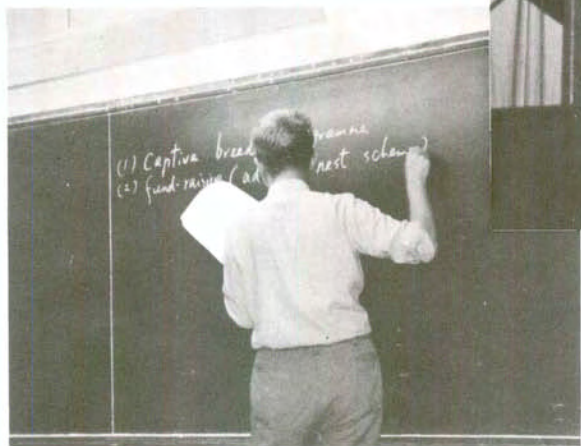 (1) Captive breed ramme
(2) fund-raising (ad nest scheme)